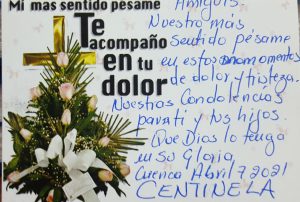 Mi mas sentido pésame
Te
acompaño
en tu
dolor
Amiguis
Nuestro más
Sentido pésame
en estos momentos
de dolor y tristeza.
Nuestras Condolencias
para ti y tus hijos
Que Dios lo tenga
en Su Gloria
Cuenca Abril 7 2021
CENTINELA